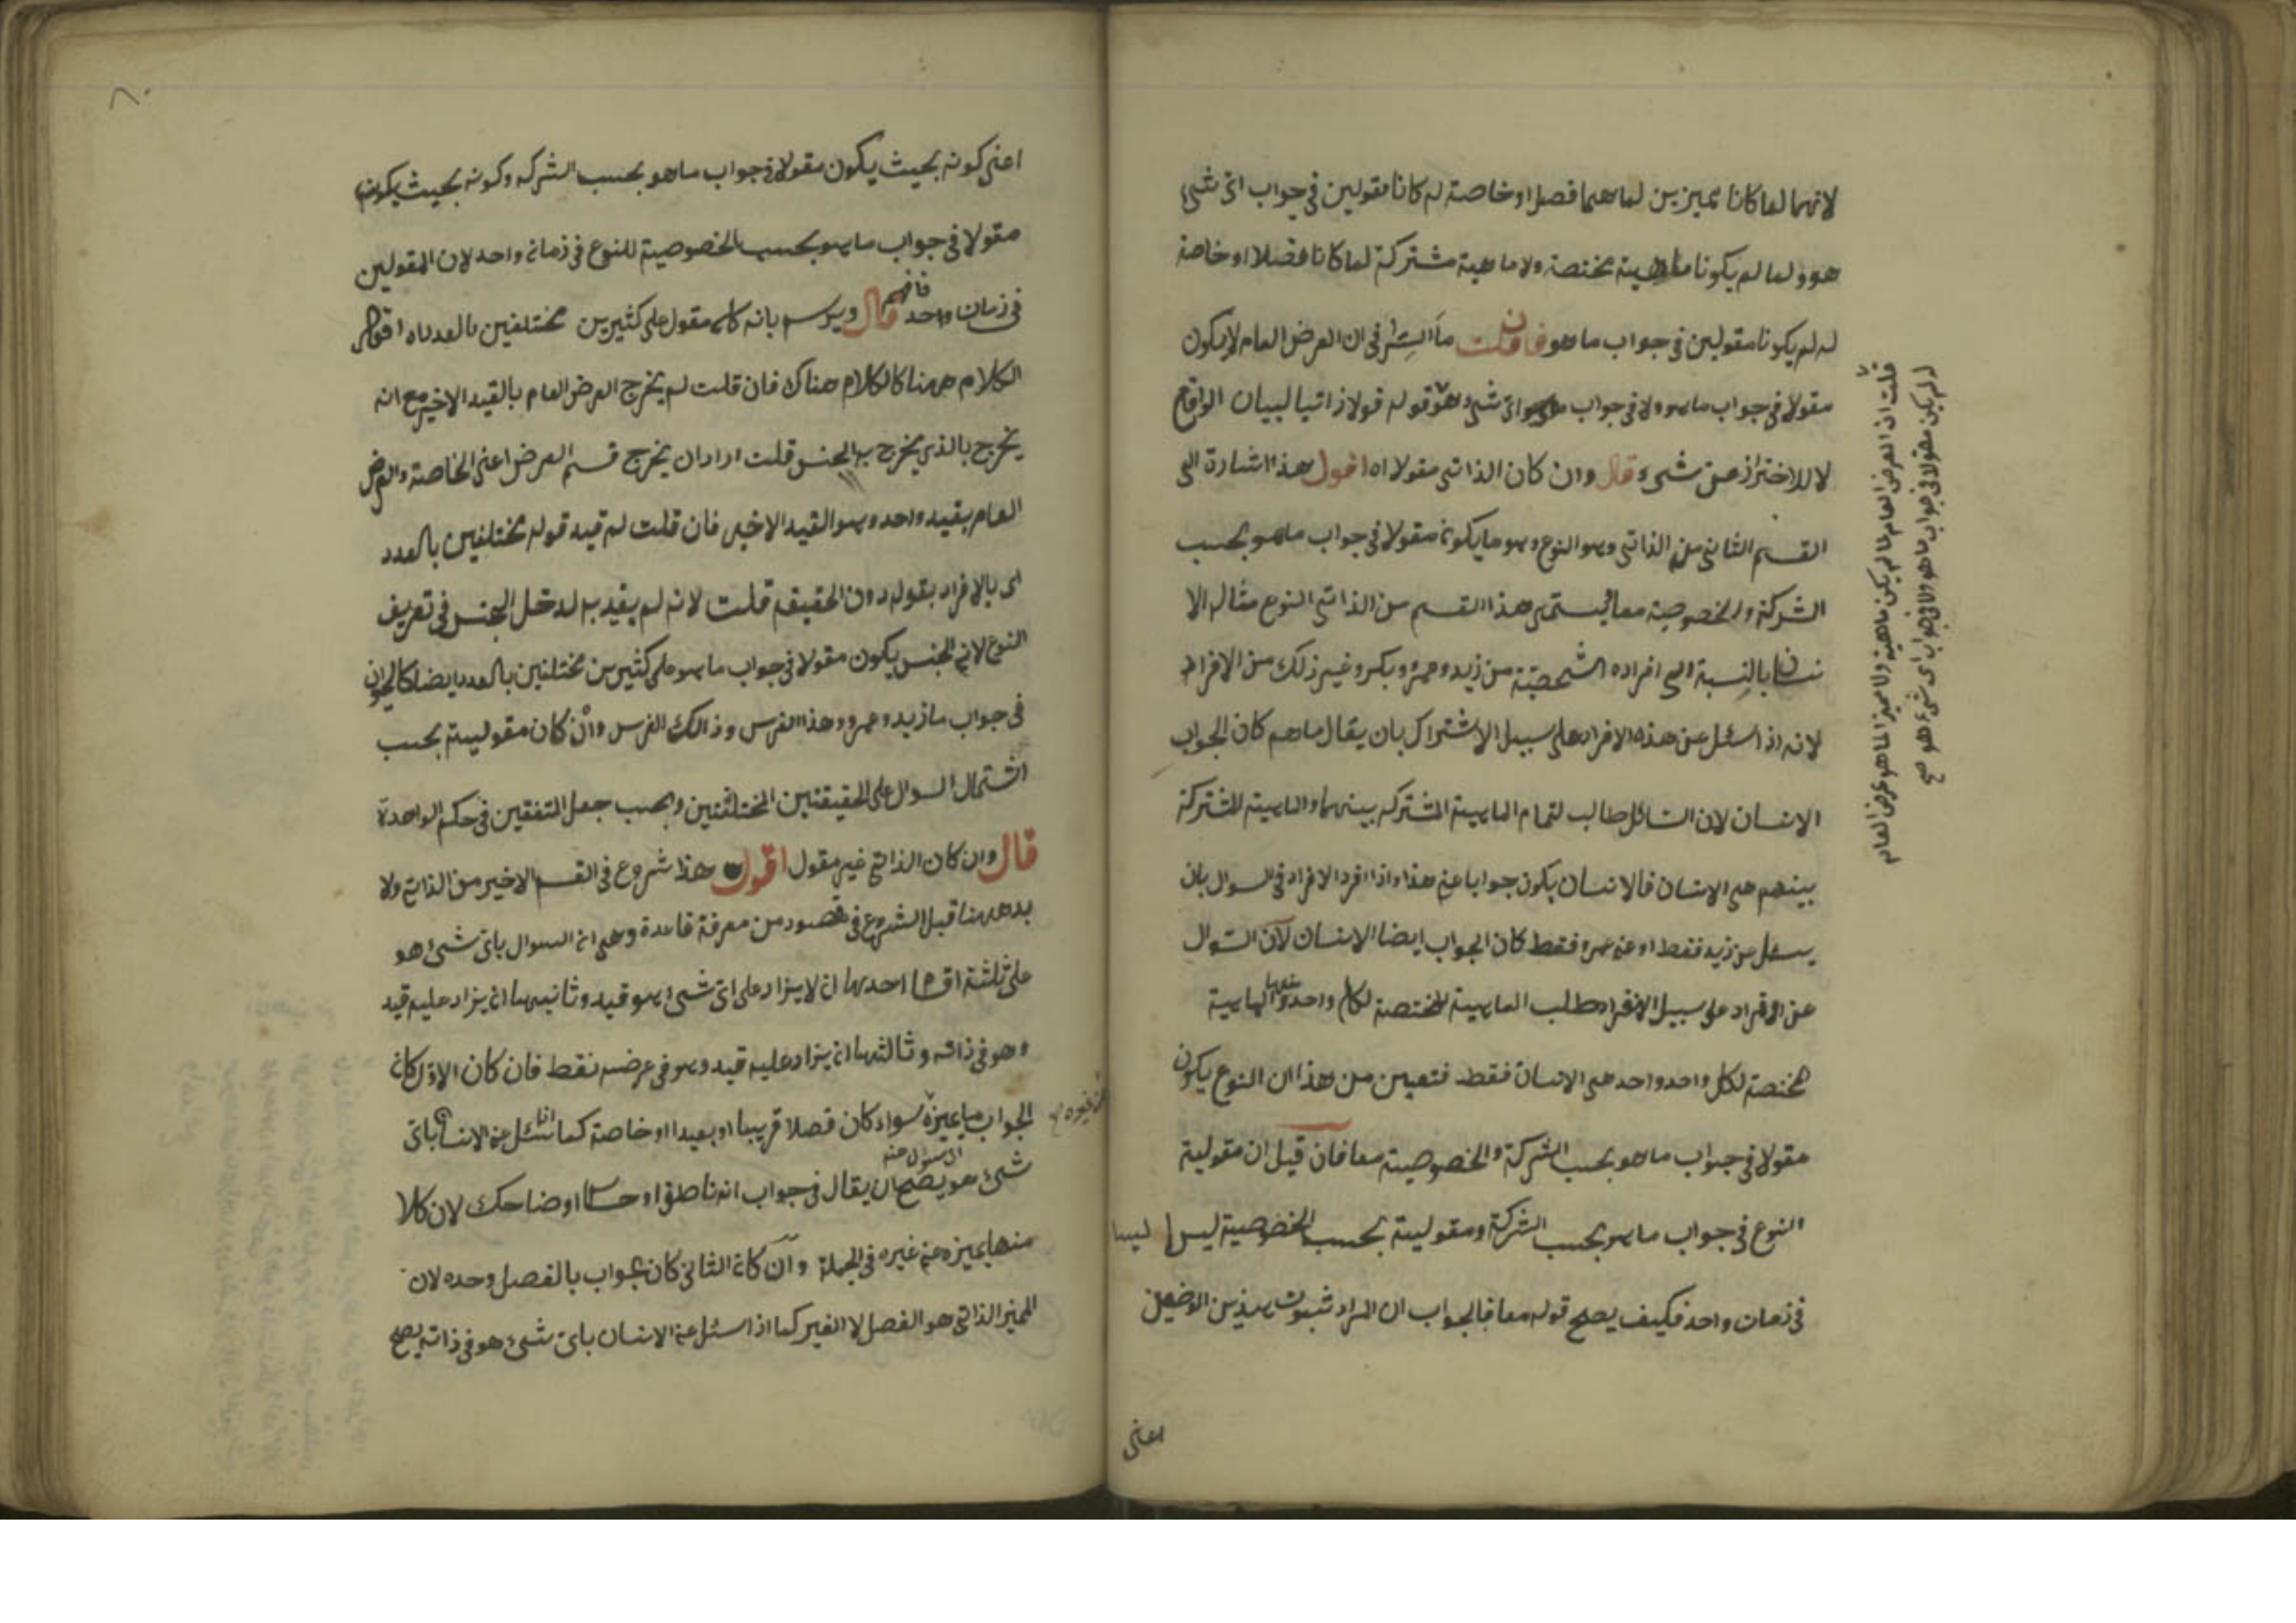 لانهما لما كانا مميزين لما هما فصل او خاصة له كانا مقولين في جواب اى شئ
هو ولما لم يكونا ماهية مختصة ولا ماهية مشتركة لما كانا فصلا او خاصة
له لم يكونا مقولين في جواب ما هو فان قلت ما السر في ان العرض العام لا يكون
مقولا في جواب ما هو ولا في جواب اى شئ هو قوله قولا ذاتيا لبيان الواقع
لا للاحتراز عن شئ قال وان كان الذاتي مقولا اه اقول هذا اشارة الى
القسم الثاني من الذاتي وهو النوع وهو ما يكون مقولا في جواب ما هو بحسب
الشركة والخصوصية معا يسمى هذا القسم من الذاتي النوع مثاله الا
نسان بالنسبة الى افراده الشخصية من زيد وعمرو وبكر وغير ذلك من الافراد
لانه اذا سئل عن هذه الافراد على سبيل الاشتراك بان يقال ما هم كان الجواب
الانسان لان السائل طالب لتمام الماهية المشتركه بينهما والماهية المشتركة
بينهم هى الانسان فالانسان يكون جوابا عن هذا واذا افرد الافراد في السوال بان
يسئل عن زيد فقط او عن عمرو فقط كان الجواب ايضا الانسان لان السوال
عن الافراد على سبيل الانفراد طلب الماهية المختصة لكل واحد منها والماهية
مختصة لكل واحد واحد هى الانسان فقط فتعين من هذا ان النوع يكون
مقولا في جواب ما هو بحسب الشركة والخصوصية معا فان قيل ان مقولية
النوع في جواب ما هو بحسب الشركة ومقولية بحسب الخصوصية ليسا
في زمان واحد فكيف يصح قوله معا فالجواب ان المراد ثبوت هذين الوصفين
اعنى
قلت ان العرض العام لما لم يكن ماهية ولا مميز الما هو عرض العام
له لم يكن مقولا في جواب ما هو ولا في جواب اى شئ هو صح
اعنى كونه بحيث يكون مقولا في جواب ما هو بحسب الشركه وكونه بحيث يكون
مقولا في جواب ما هو بحسب الخصوصية للنوع في زمان واحد لان المقولين
في زمان واحد فافهم قال ويرسم بانه كلى مقول على كثيرين مختلفين بالعدد اه اقول
الكلام ههنا كالكلام هناك فان قلت لم يخرج العرض العام بالقيد الاخير مع انه
يخرج بالذي يخرج به الجنس قلت اراد ان يخرج قسم العرض اعنى الخاصة والعرض
العام بقيد واحد وهو القيد الاخير فان قلت لم قيد قوله مختلفين بالعدد
اى بالافراد بقوله دون الحقيقة قلت لانه لم يقيد به لدخل الجنس في تعريف
النوع لان الجنس يكون مقولا في جواب ما هو على كثيرين مختلفين بالعدد ايضا كالحيوان
في جواب ما زيد وعمرو وهذا الفرس وذالك الفرس وان كان مقوليته بحسب
اشتمال السوال على الحقيقتين المختلفتين وبحسب جعل المتفقين في حكم الواحدة
قال وان كان الذاتي غير مقول اقول هذا شروع في القسم الاخير من الذاتي ولا
بد ههنا قبل الشروع في قصود من معرفة قاعدة وهى ان السوال باى شئ هو
على ثلثة اقسام احدها ان لا يزاد على اى شئ هو قيد وثانيها ان يزاد عليه قيد
وهو في ذاته وثالثها ان يزاد عليه قيد وهو في عرضه فقط فان كان الاول كان
الجواب ما يميزه سواء كان فصلا قريبا او بعيدا او خاصة كما اذا سئل عن الانسان باى
شئ هو يصح ان يقال في جواب انه ناطق او حساس او ضاحك لان كلا
منها يميزه عن غيره في الجملة وان كان الثاني كان جواب بالفصل وحده لان
المميز الذاتي هو الفصل لا الغير كما اذا سئل عن الانسان باى شئ هو في ذاته يصح